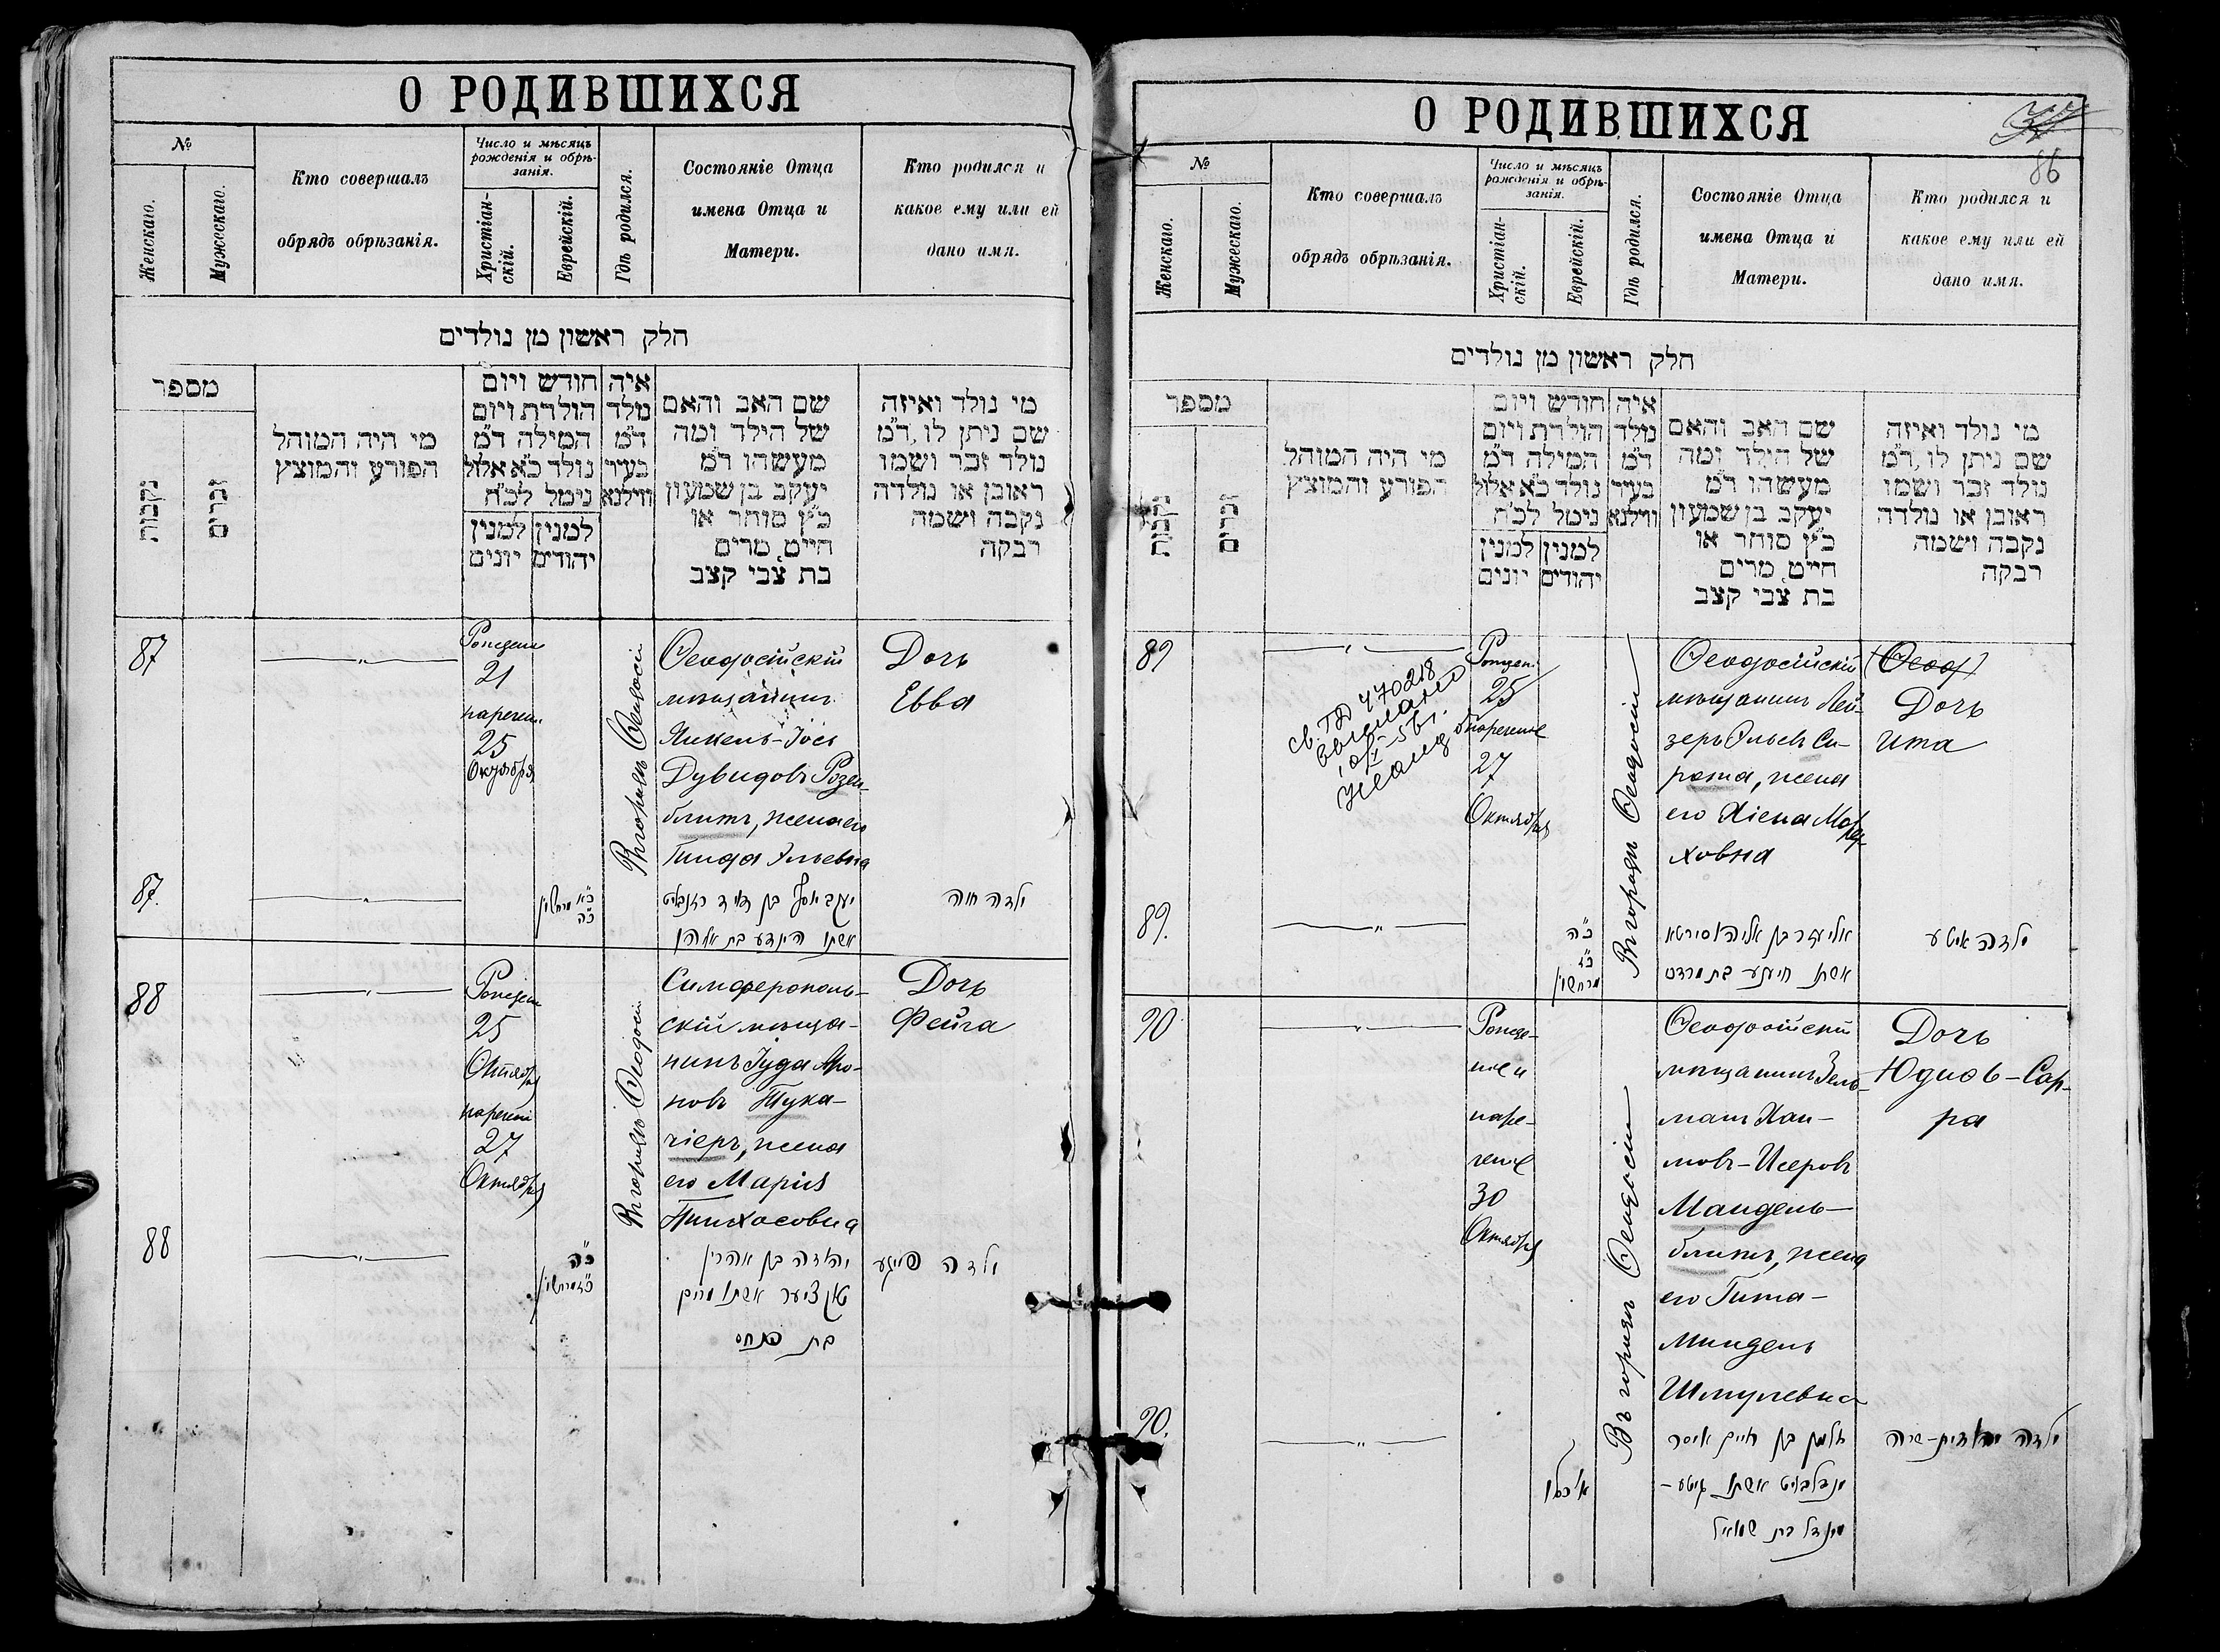 О РОДИВШИХСЯ
№
Женскаго.
Мужескаго.
Кто совершалъ
обрядъ обрѣзанія.
Число и мѣсяцъ
рожденія и обрѣ-
занія.
Христіан-
скій.
Еврейскій.
Гдѣ родился.
Состояніе Отца
имена Отца и
Матери.
Кто родился и
какое ему или ей
дано имя.
חלק ראשון מן נולדים
מספר
נקבות
זכרים
מי היה המוהל
הפורע והמוצץ
חודש ויום
הולדת ויום
המילה ד״מ
נולד כ״א אלול
נימל לכ״ח
למנין יהודים
למנין יונים
איה
נולד
ד״מ
בעיר
ווילנא
שם האב והאם
של הילד ומה
מעשהו ד״מ
יעקב בן שמעון
כ״ץ סוחר או
חייט, מרים
בת צבי קצב
מי נולד ואיזה
שם ניתן לו, ד״מ
נולד זכר ושמו
ראובן או נולדה
נקבה ושמה
רבקה
87
21
25
Октября
Въ городѣ Ѳеодосіи
Ѳеодосійскій
мѣщанинъ
Янкель-Іось
Дувидовъ Розен-
блитъ, жена его
Гинда Эльевна
Дочь
Евва
87.
כ״א מרחשון
כ״ה
יעקב יוסף בן דוד רוזנבליט
אשתו הינדע בת אליהו
ילדה חוה
88
25
Октября
27
Октября
Въ городѣ Ѳеодосіи
Симферополь-
скій мѣща-
нинъ Іуда Аро-
новъ Тука-
чіеръ, жена
его Марія
Пинхасовна
Дочь
Фейга
88
כ״ה
כ״ז מרחשון
יהודה בן אהרן
אשתו מרים
בת פנחס
ילדה פייגע
О РОДИВШИХСЯ
86
№
Женскаго.
Мужескаго.
Кто совершалъ
обрядъ обрѣзанія.
Число и мѣсяцъ
рожденія и обрѣ-
занія.
Христіан-
скій.
Еврейскій.
Гдѣ родился.
Состояніе Отца
имена Отца и
Матери.
Кто родился и
какое ему или ей
дано имя.
חלק ראשון מן נולדים
מספר
נקבות
זכרים
מי היה המוהל
הפורע והמוצץ
חודש ויום
הולדת ויום
המילה ד״מ
נולד כ״א אלול
נימל לכ״ח
למנין יהודים
למנין יונים
איה
נולד
ד״מ
בעיר
ווילנא
שם האב והאם
של הילד ומה
מעשהו ד״מ
יעקב בן שמעון
כ״ץ סוחר או
חייט, מרים
בת צבי קצב
מי נולד ואיזה
שם ניתן לו, ד״מ
נולד זכר ושמו
ראובן או נולדה
נקבה ושמה
רבקה
89
св. ГД 470218
25
27
Октября
Въ городѣ Ѳеодосіи
Ѳеодосійскій
мѣщанинъ Лей-
зеръ Эльевъ Си-
рота, жена
его ХіенаМорд-
ховна
Ѳеод
Дочь
Ита
89.
כ״ה
כ״ז
מרחשון
אליעזר בן אליהו סירטא
אשתו חיענע בת מרדכי
ילדה איטע
90
Рожде-
ніе и
наре-
ченіе
30
Октября
Въ городѣ Ѳеодосіи
Ѳеодосійскій
мѣщанинъ Зель-
манъ Хаи-
мовъ-Исеровъ
Мандель-
блитъ, жена
его Гита-
Миндель
Шмулевна
Дочь
Юдиѳь-Сар-
ра
90.
א׳ כסלו
זלמן בן חיים איסר
מנדלבליט אשתו גיטע-
מינדל בת שמואל
ילדה יהודית-שרה